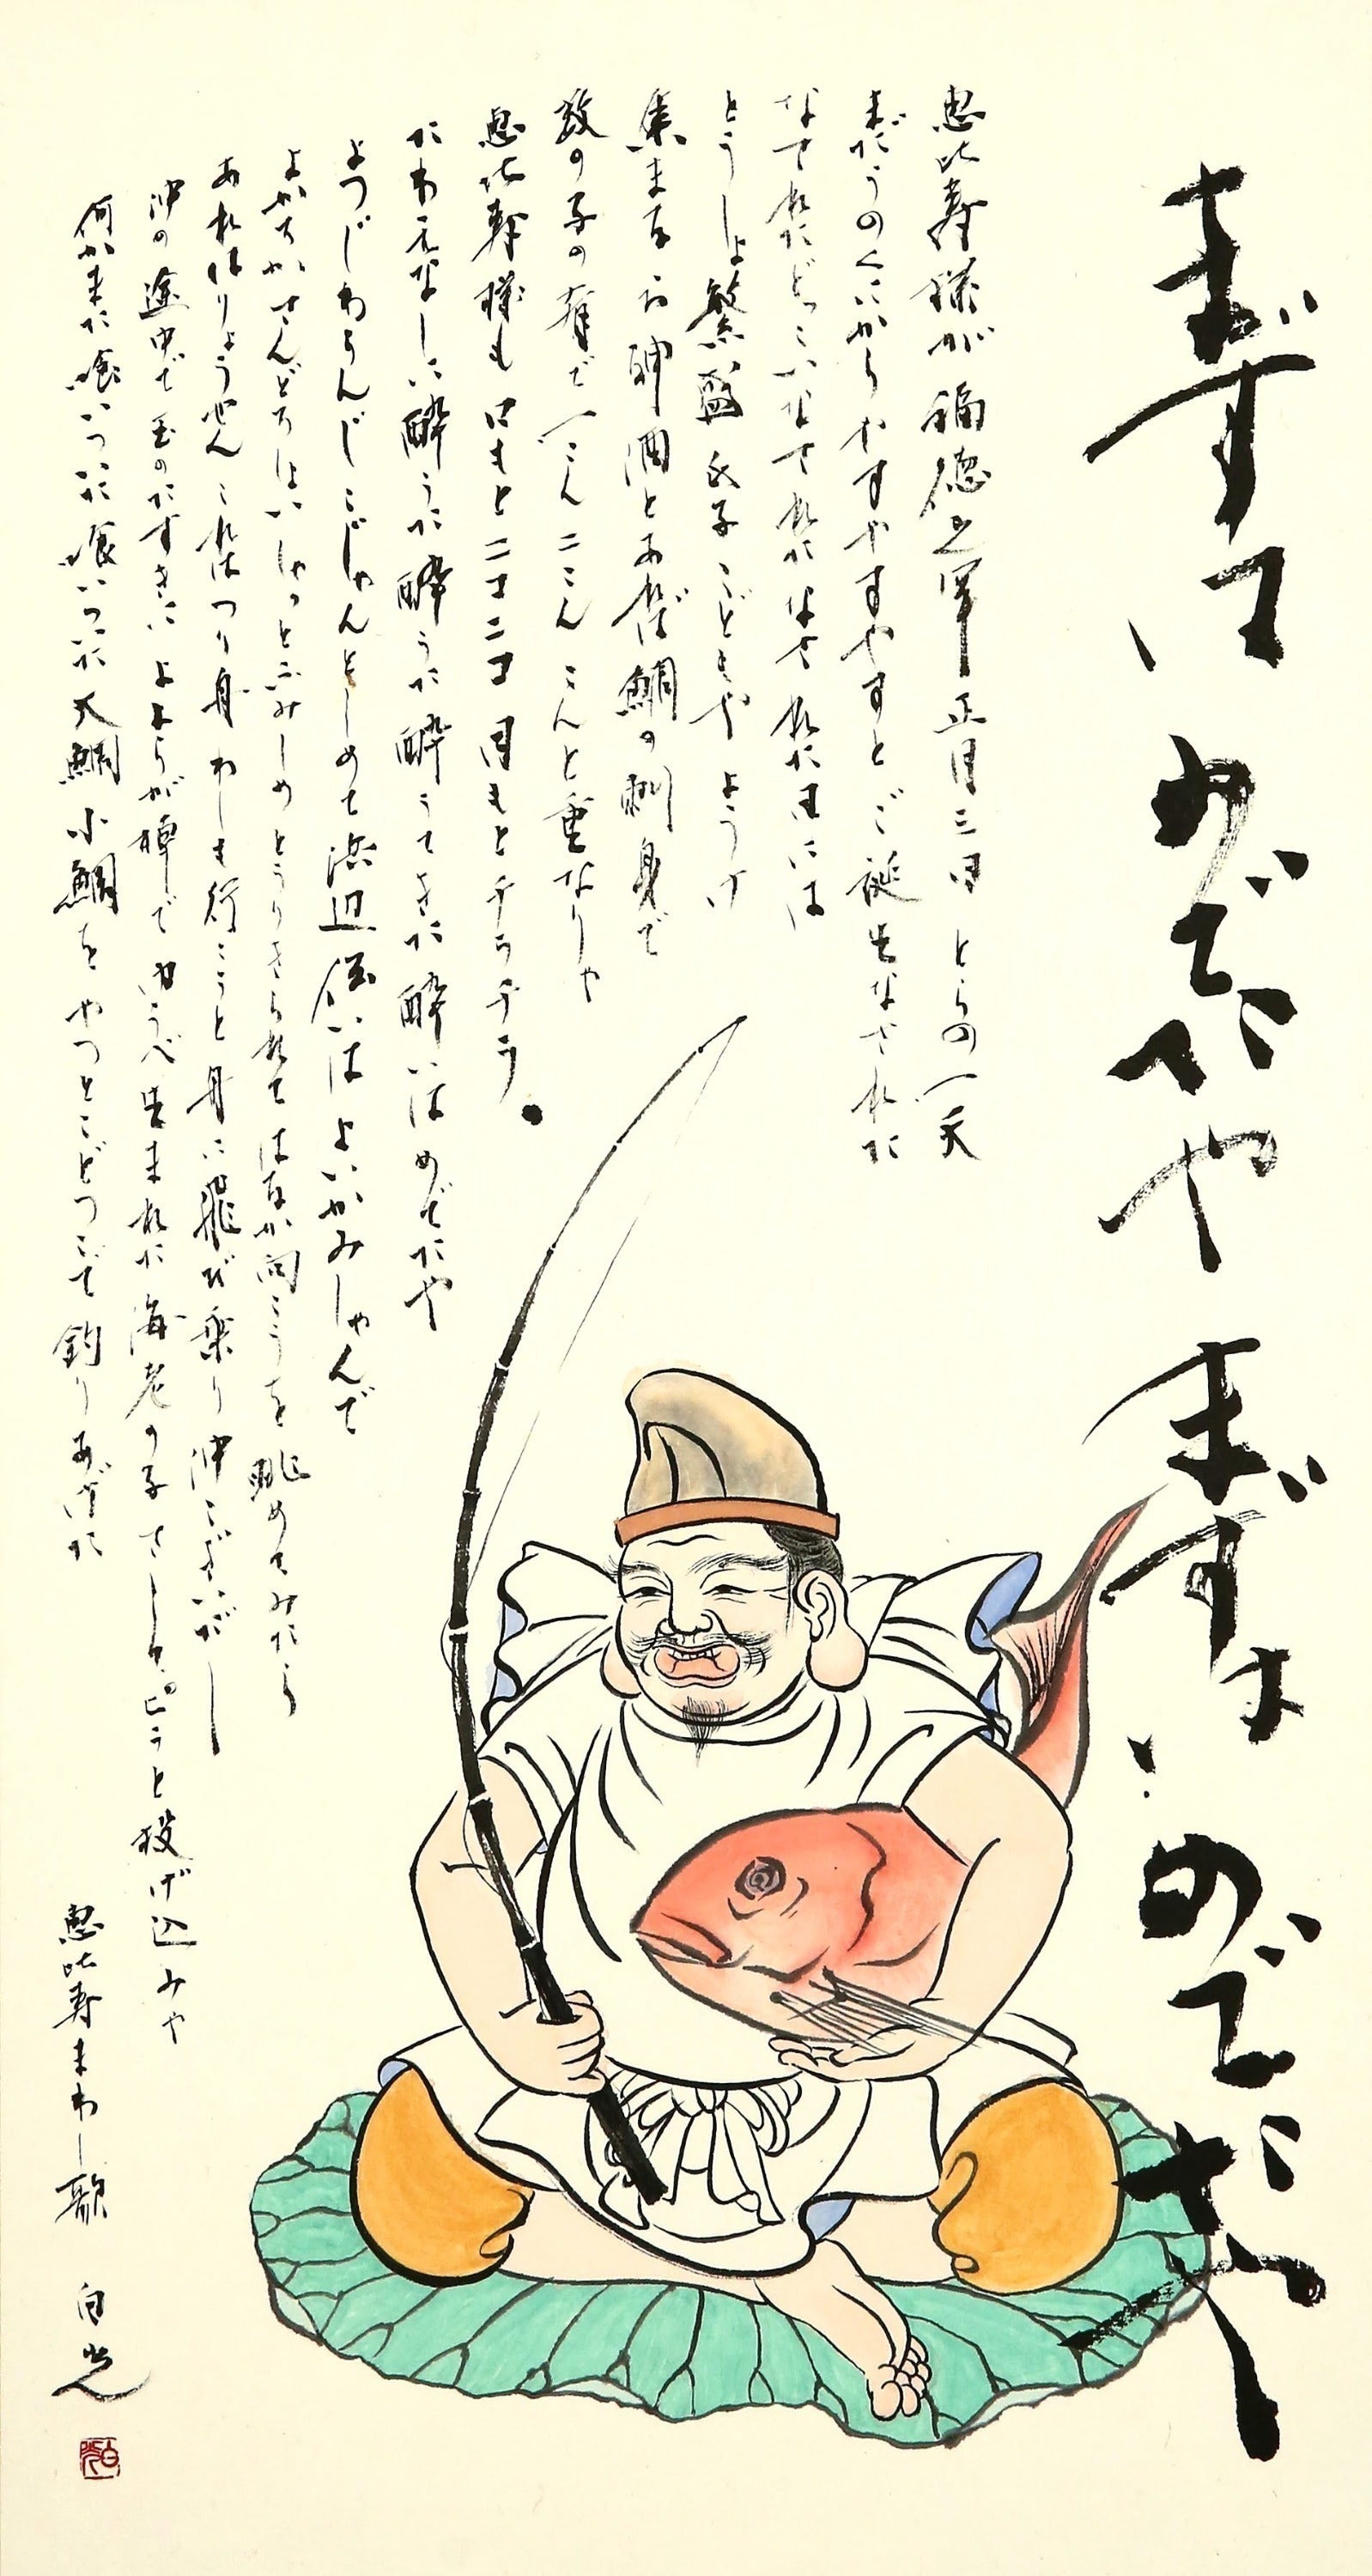 まずは めでたや まずは めでたや
恵比寿様が福徳元年正月三日 とらの一天
まだうのくにからやすやすやすとご誕生なされた
なされたどっこいなされたなされた日には
とうしょ繁盛 氏子 こどもや ようけ
集まる お神酒とあれば鯛の刺身で
数の子の肴で 一こん 二こん こんと重なりゃ
恵比寿様も 口もとニコニコ 目もとチラチラ
たわえなしに酔うた酔うた酔うてきた酔いはめでたや
よつじわらんじこじゃんとしめて浜辺伝いは よいかみしゃんで
とうりきられてはるか向こうを眺めてみたら
あれはりょうせん これはつり舟 わしも行こうと舟に飛び乗り 沖こぎいだし
沖の途中で 玉のたすきに よよらが棹で ゆうべ生まれた海老の子さしけ ピラと投げ込みゃ
何かまた喰いついた喰いついた大鯛小鯛を やっとこどっこいて釣りあげた
恵比寿まわし歌 白光